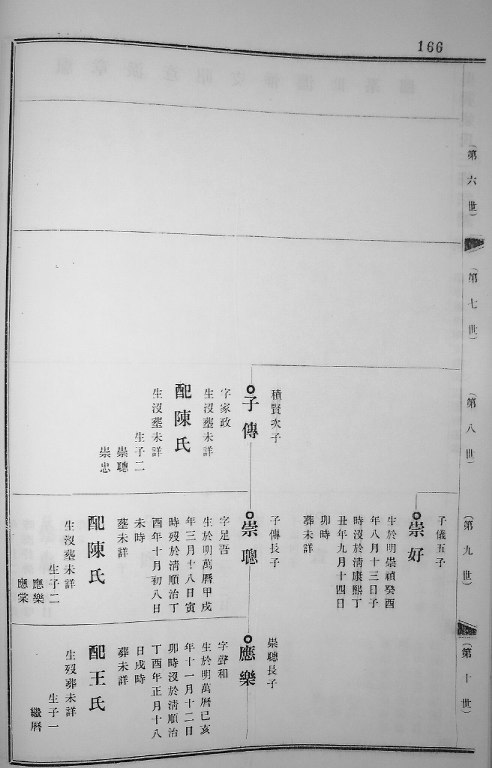 166
(第六世)
(第七世)
(第八世)
積賢次子
子傳
字家政
生沒塟未詳
配陳氏
生沒塟未詳
生子二
崇聰
崇忠
(第九世)
子儀五子
崇好
生於明崇禎癸酉
年八月十三日子
時沒於清康熙丁
丑年九月十四日
卯時
塟未詳
子傳長子
崇聰
字足吾
生於明萬曆甲戌
年三月十八日寅
時歿於清順治丁
酉年十月初八日
未時
塟未詳
配陳氏
生沒塟未詳
生子二
應樂
應棠
(第十世)
崇聰長子
應樂
字聲和
生於明萬曆己亥
年十一月十二日
卯時沒於清順治
丁酉年正月十八
日戌時
葬未詳
配王氏
生歿葬未詳
生子一
繼曆